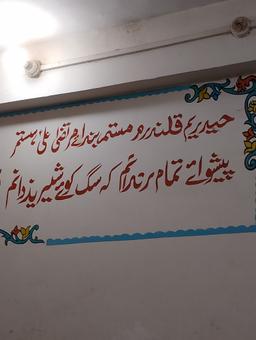 حیدریم قلندرم مستم بندہ مرتضیٰ علی ہستم
پیشوائے تمام رندانم کہ سگ کوئے شیر یزدانم